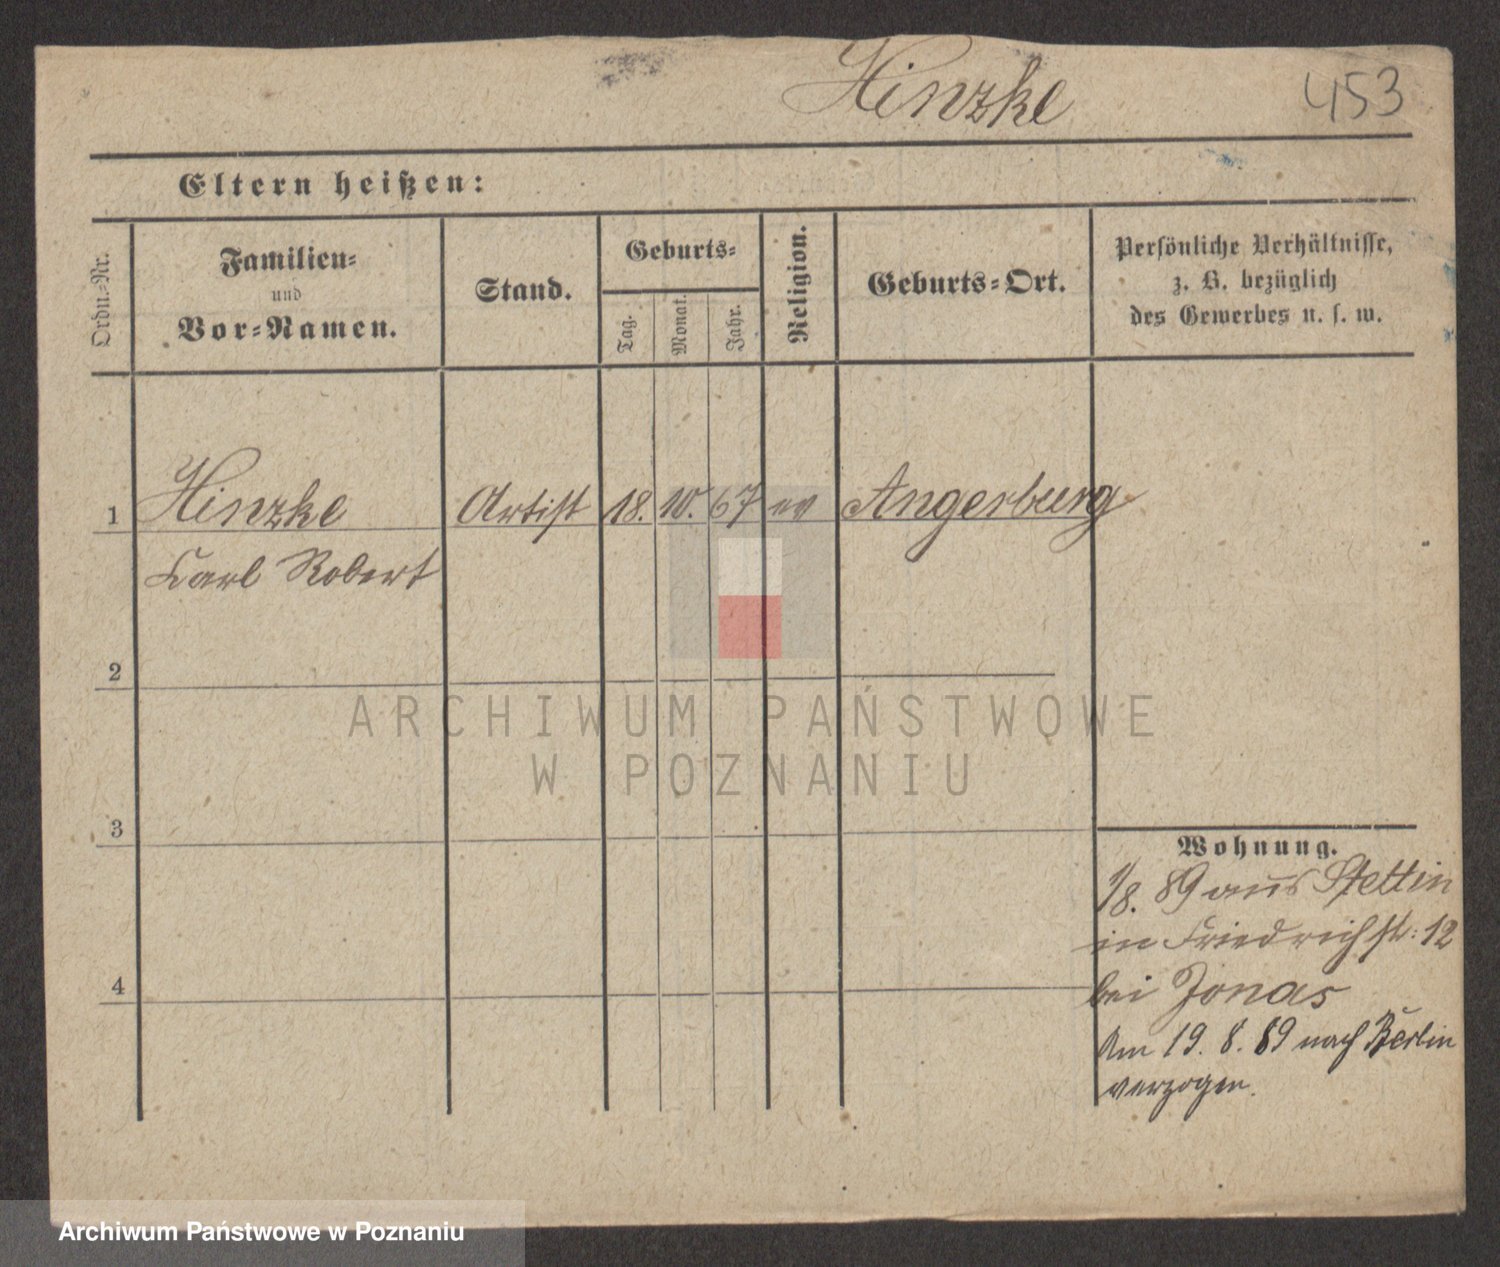 Hinzke
453
Eltern heißen:
Ordn.-Nr.
Familien-
und
Vor-Namen.
Stand.
Geburts-
Tag.
Monat.
Jahr.
Religion.
Geburts-Ort.
Persönliche Verhältnisse,
z. B. bezüglich
des Gewerbes u. s. w.
1 Hinzke Artist 18. 10. 67 ev Angerburg
Carl Robert
2
3
4
Wohnung.
1/8. 89 aus Stettin
in Friedrichstr: 12
bei Jonas
Am 19. 8. 89 nach Berlin
verzogen.
ARCHIWUM PAŃSTWOWE
W POZNANIU
Archiwum Państwowe w Poznaniu